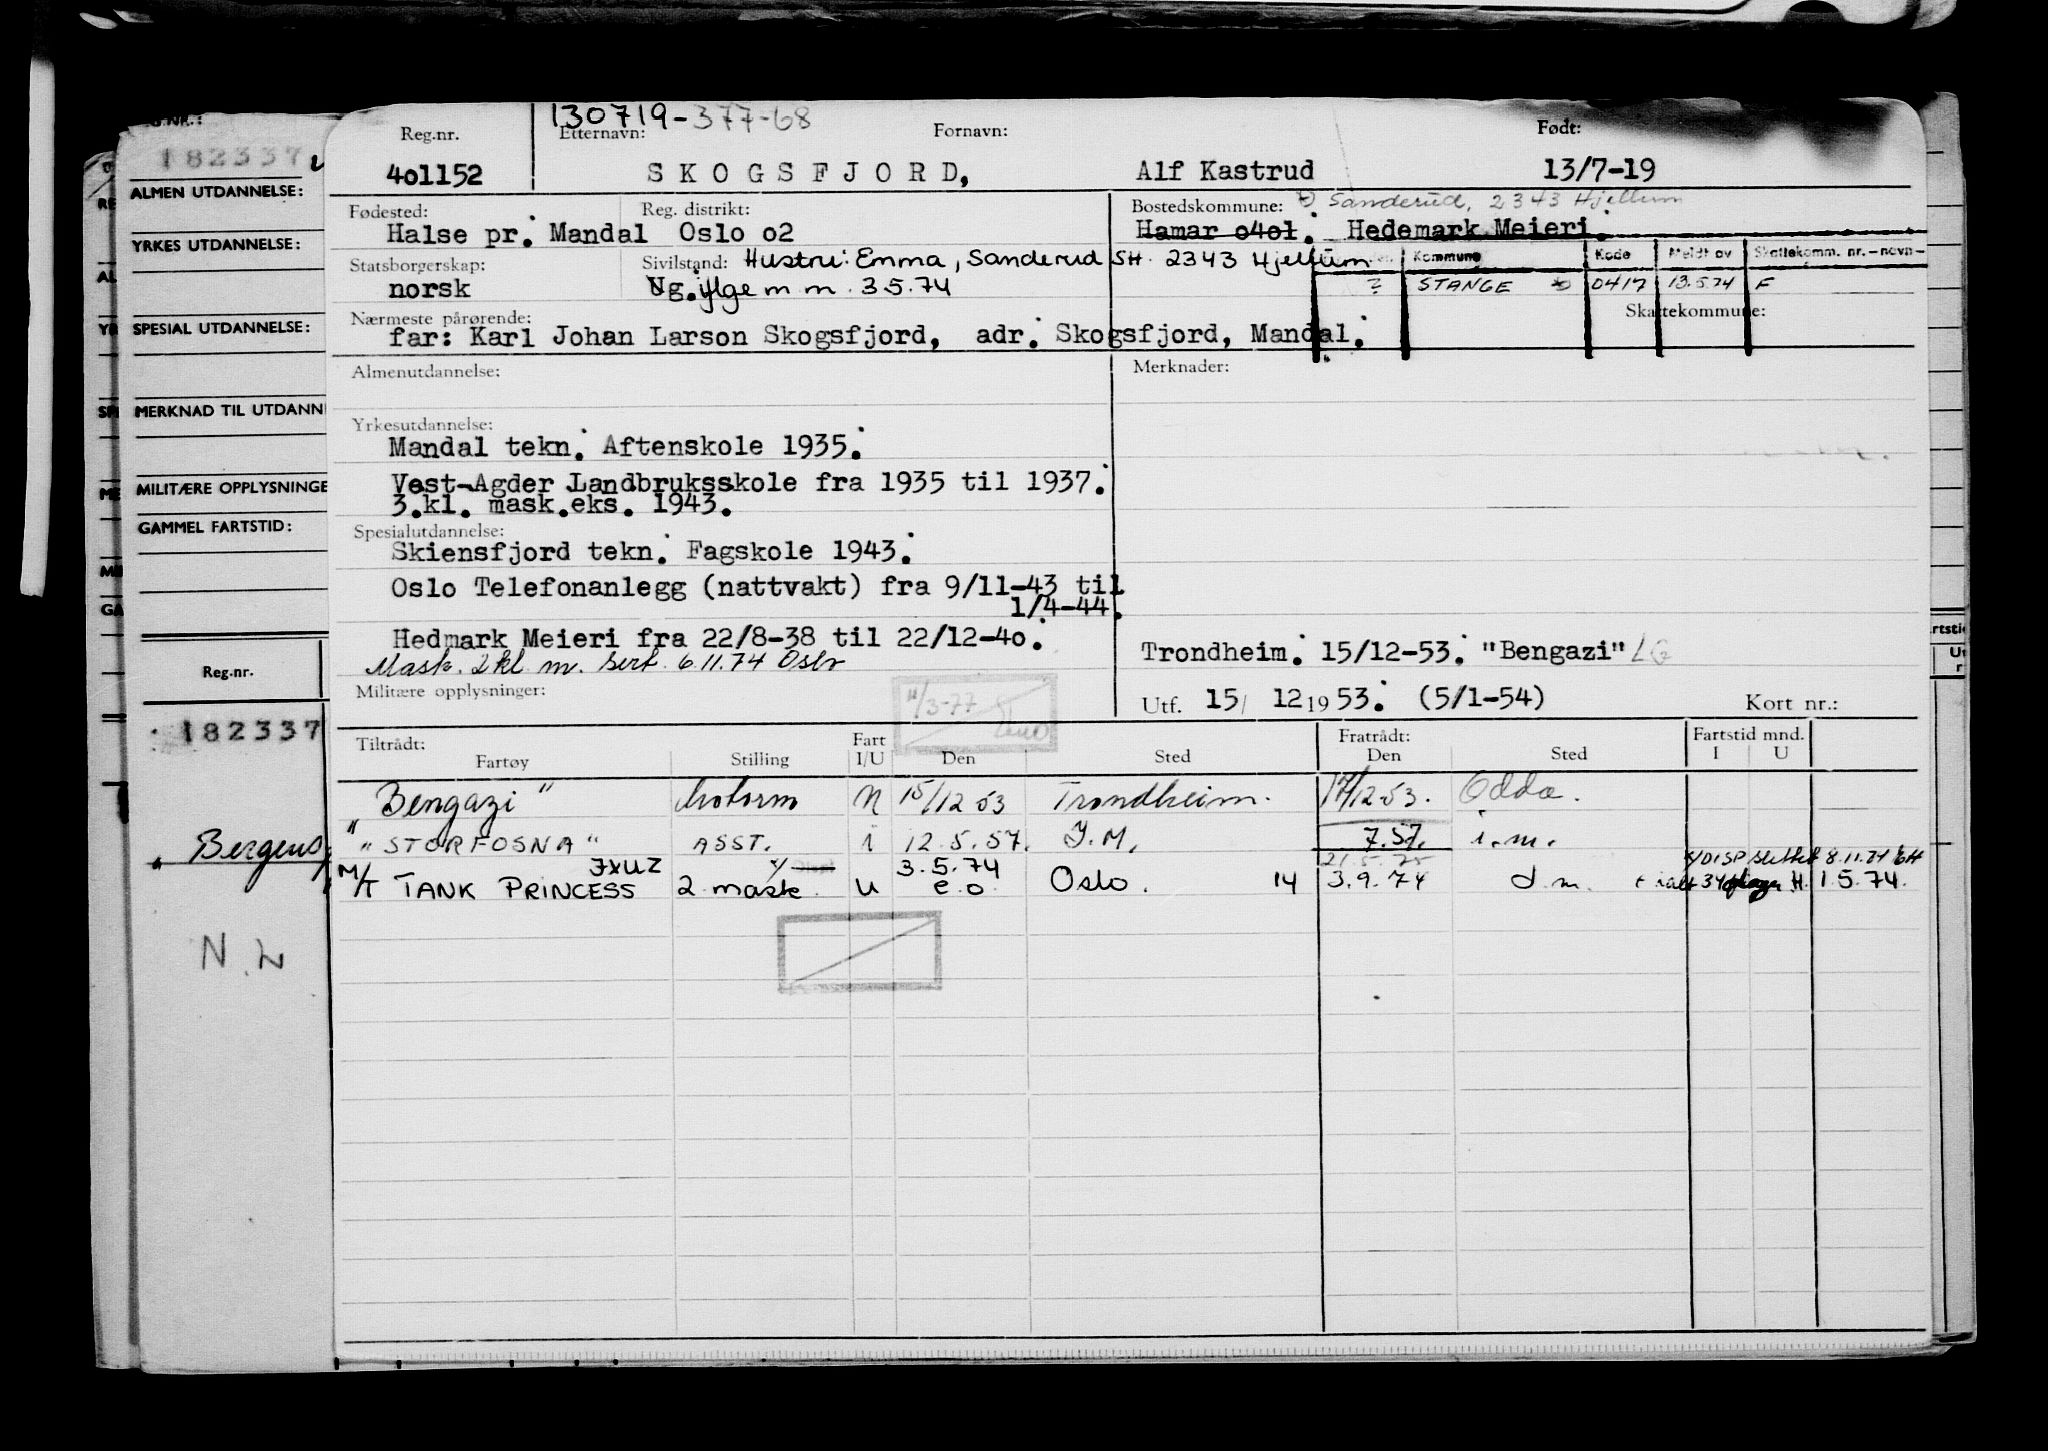 130719-377-68
Reg.nr. Etternavn: Fornavn: Født:
401152 SKOGSFJORD, Alf Kastrud 13/7-19
Fødested: Reg. distrikt: Bostedskommune: Sanderud, 2343 Hjellum
Halse pr. Mandal Oslo o2 Hamar o4o1. Hedemark Meieri.
Statsborgerskap: Sivilstand: Hustru: Emma, Sanderud SH. 2343 Hjellum Kommune Kode Meldt av Skattekomm. nr. - navn -
norsk Ug. iflge m m. 3.5.74 ? STANGE 0417 13.5.74 F
Nærmeste pårørende: Skattekommune:
far: Karl Johan Larson Skogsfjord, adr. Skogsfjord, Mandal.
Almenutdannelse: Merknader:
Yrkesutdannelse:
Mandal tekn. Aftenskole 1935.
Vest-Agder Landbruksskole fra 1935 til 1937.
3.kl. mask.eks. 1943.
Spesialutdannelse:
Skiensfjord tekn. Fagskole 1943.
Oslo Telefonanlegg (nattvakt) fra 9/11-43 til
1/4-44.
Hedmark Meieri fra 22/8-38 til 22/12-4o.
Mask. 2 kl. m. sert. 6.11.74 Oslo
Trondheim. 15/12-53. "Bengazi" LG
Militære opplysninger: 11/3-77
Utf. 15/ 12 19 53. (5/1-54) Kort nr.:
Tiltrådt: Fart Fratrådt: Fartstid mnd.
Fartøy Stilling I/U Den Sted Den Sted I U
"Bengazi" Motorm N 15/12 53 Trondheim. 17/12-53. Odda.
"STORFOSNA" ASST. i 12.5.57. I.M. 7.57. i.m.
JXUZ 3.5.74 21.5.75 DISP slettet 8.11.74
M/T TANK PRINCESS 2 mask. U e.o. Oslo. 14 3.9.74 d.m. H. 1.5.74.
G.NR.:
182337
ALMEN UTDANNELSE:
YRKES UTDANNELSE:
SPESIAL UTDANNELSE:
MERKNAD TIL UTDANN
MILITÆRE OPPLYSNINGE
GAMMEL FARTSTID:
Reg.nr.
182337
"Bergens
N.L